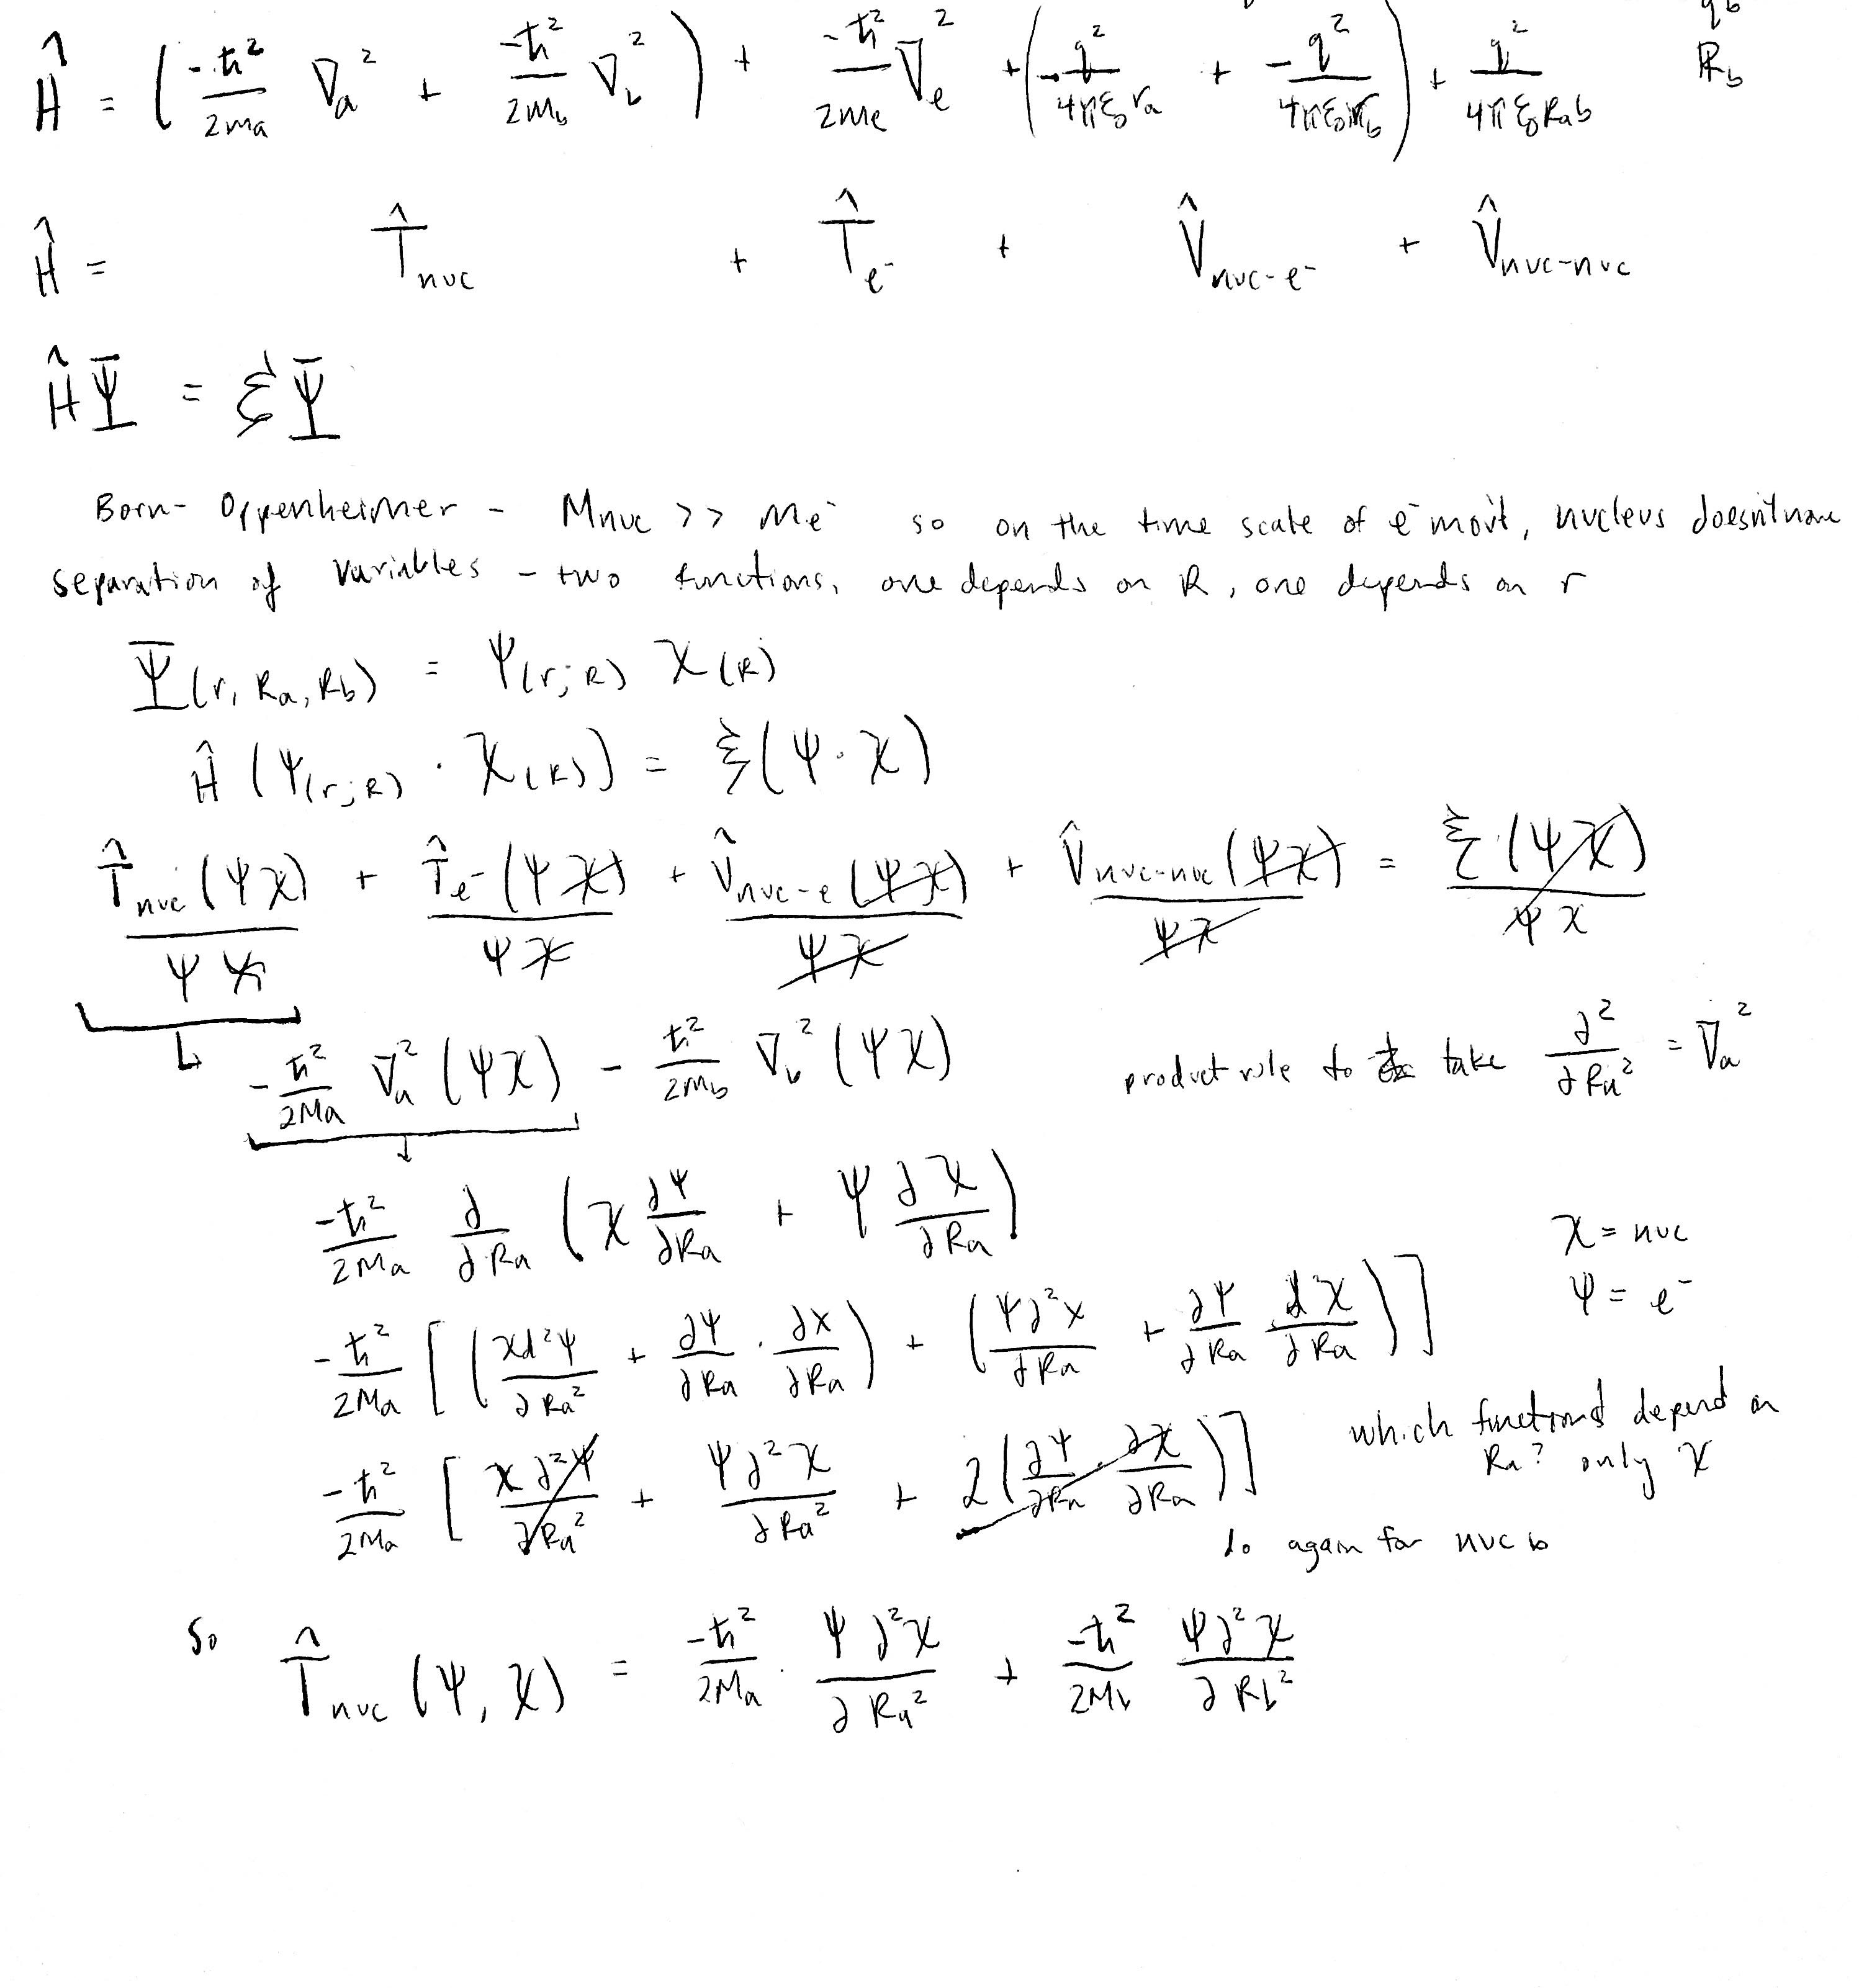 Ĥ = ( -ħ²/2ma ∇a² + -ħ²/2Mb ∇b² ) + -ħ²/2me ∇e² + ( -q²/4πε₀ra + -q²/4πε₀rb ) + q²/4πε₀Rab
qb
Rb
Ĥ = T̂nuc + T̂e⁻ + V̂nuc-e⁻ + V̂nuc-nuc
ĤΨ = ξΨ
Born-Oppenheimer - Mnuc >> me⁻ so on the time scale of e⁻ mov't, nucleus doesn't move
separation of variables - two functions, one depends on R, one depends on r
Ψ(r, Ra, Rb) = ψ(r;R) χ(R)
Ĥ (ψ(r;R) · χ(R)) = ξ(ψ·χ)
T̂nuc(ψχ)/ψχ + T̂e⁻(ψχ)/ψχ + V̂nuc-e(ψχ)/ψχ + V̂nuc-nuc(ψχ)/ψχ = ξ(ψχ)/ψχ
↳ -ħ²/2Ma ∇a²(ψχ) - ħ²/2Mb ∇b²(ψχ)
product rule to take ∂²/∂Ra² = ∇a²
-ħ²/2Ma ∂/∂Ra ( χ ∂ψ/∂Ra + ψ ∂χ/∂Ra )
χ = nuc
ψ = e⁻
-ħ²/2Ma [ ( χd²ψ/∂Ra² + ∂ψ/∂Ra · ∂χ/∂Ra ) + ( ψ∂²χ/∂Ra + ∂ψ/∂Ra ∂χ/∂Ra ) ]
which functions depend on
Ra? only χ
-ħ²/2Ma [ χ∂²ψ/∂Ra² + ψ∂²χ/∂Ra² + 2( ∂ψ/∂Ra · ∂χ/∂Ra ) ]
do again for nuc b
So T̂nuc(ψ, χ) = -ħ²/2Ma · ψ∂²χ/∂Ra² + -ħ²/2Mb ψ∂²χ/∂Rb²